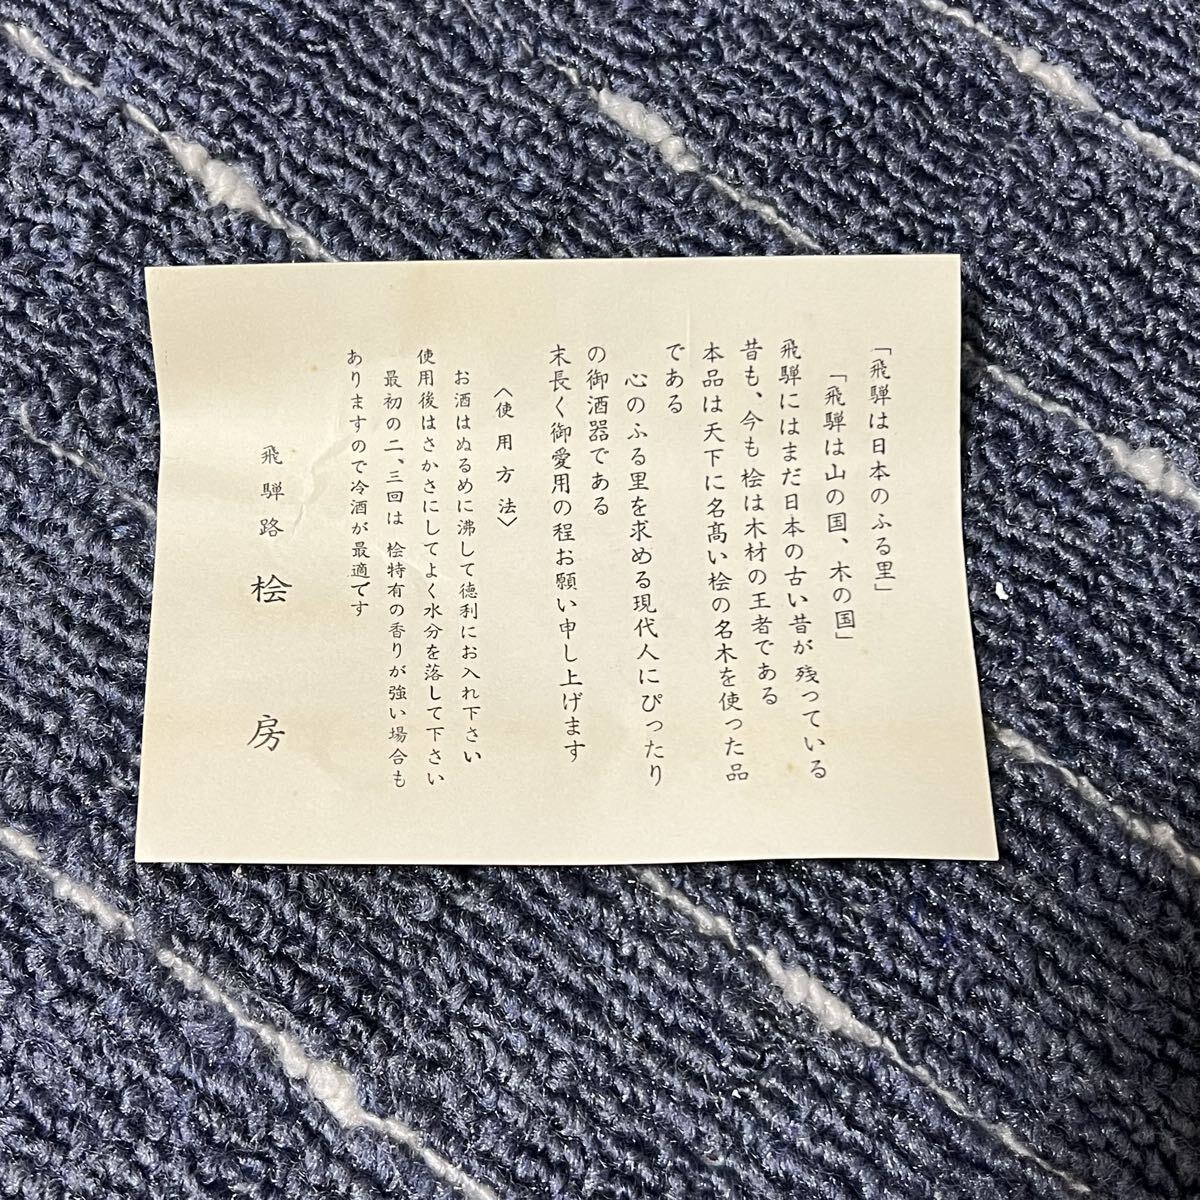 「飛騨は日本のふる里」
「飛騨は山の国、木の国」
飛騨にはまだ日本の古い昔が残っている
昔も、今も桧は木材の王者である
本品は天下に名髙い桧の名木を使った品
である
心のふる里を求める現代人にぴったり
の御酒器である
末長く御愛用の程お願い申し上げます
〈使用方法〉
お酒はぬるめに沸して徳利にお入れ下さい
使用後はさかさにしてよく水分を落して下さい
最初の二、三回は桧特有の香りが強い場合も
ありますので冷酒が最適です
飛騨路 桧房